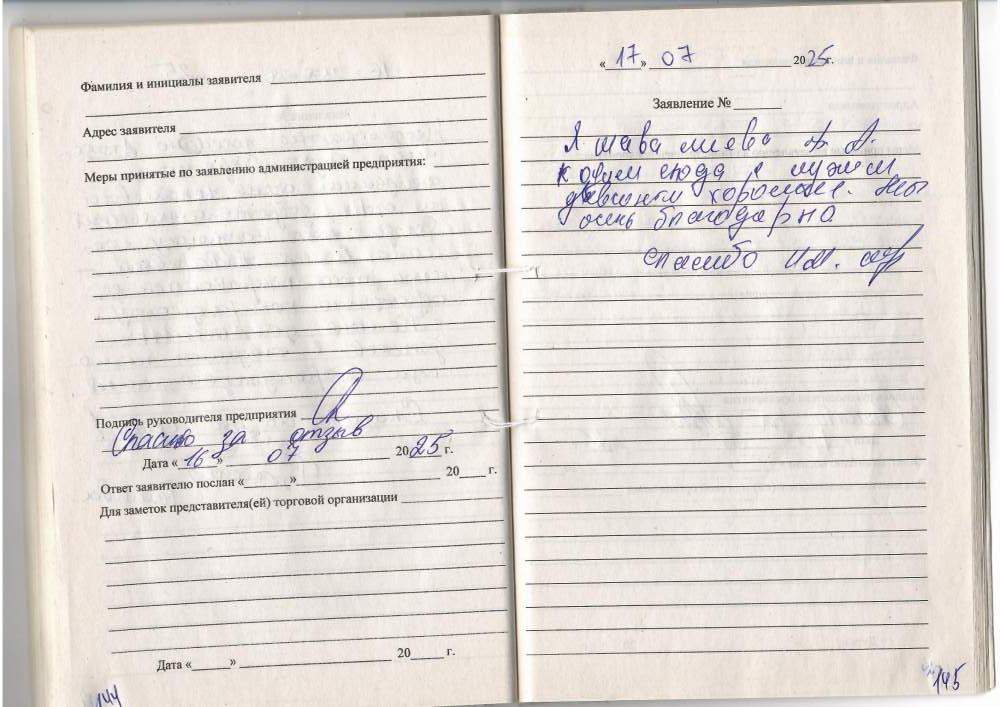 Фамилия и инициалы заявителя
Адрес заявителя
Меры принятые по заявлению администрацией предприятия:
Подпись руководителя предприятия
Спасибо за отзыв
Дата «16» 07 2025 г.
Ответ заявителю послан «______» 20____ г.
Для заметок представителя(ей) торговой организации
Дата «______» 20_____ г.
144
«17» 07 2025г.
Заявление № _______
Я
сюда с мужем
хорошие. Мы
очень благодарна
спасибо
145